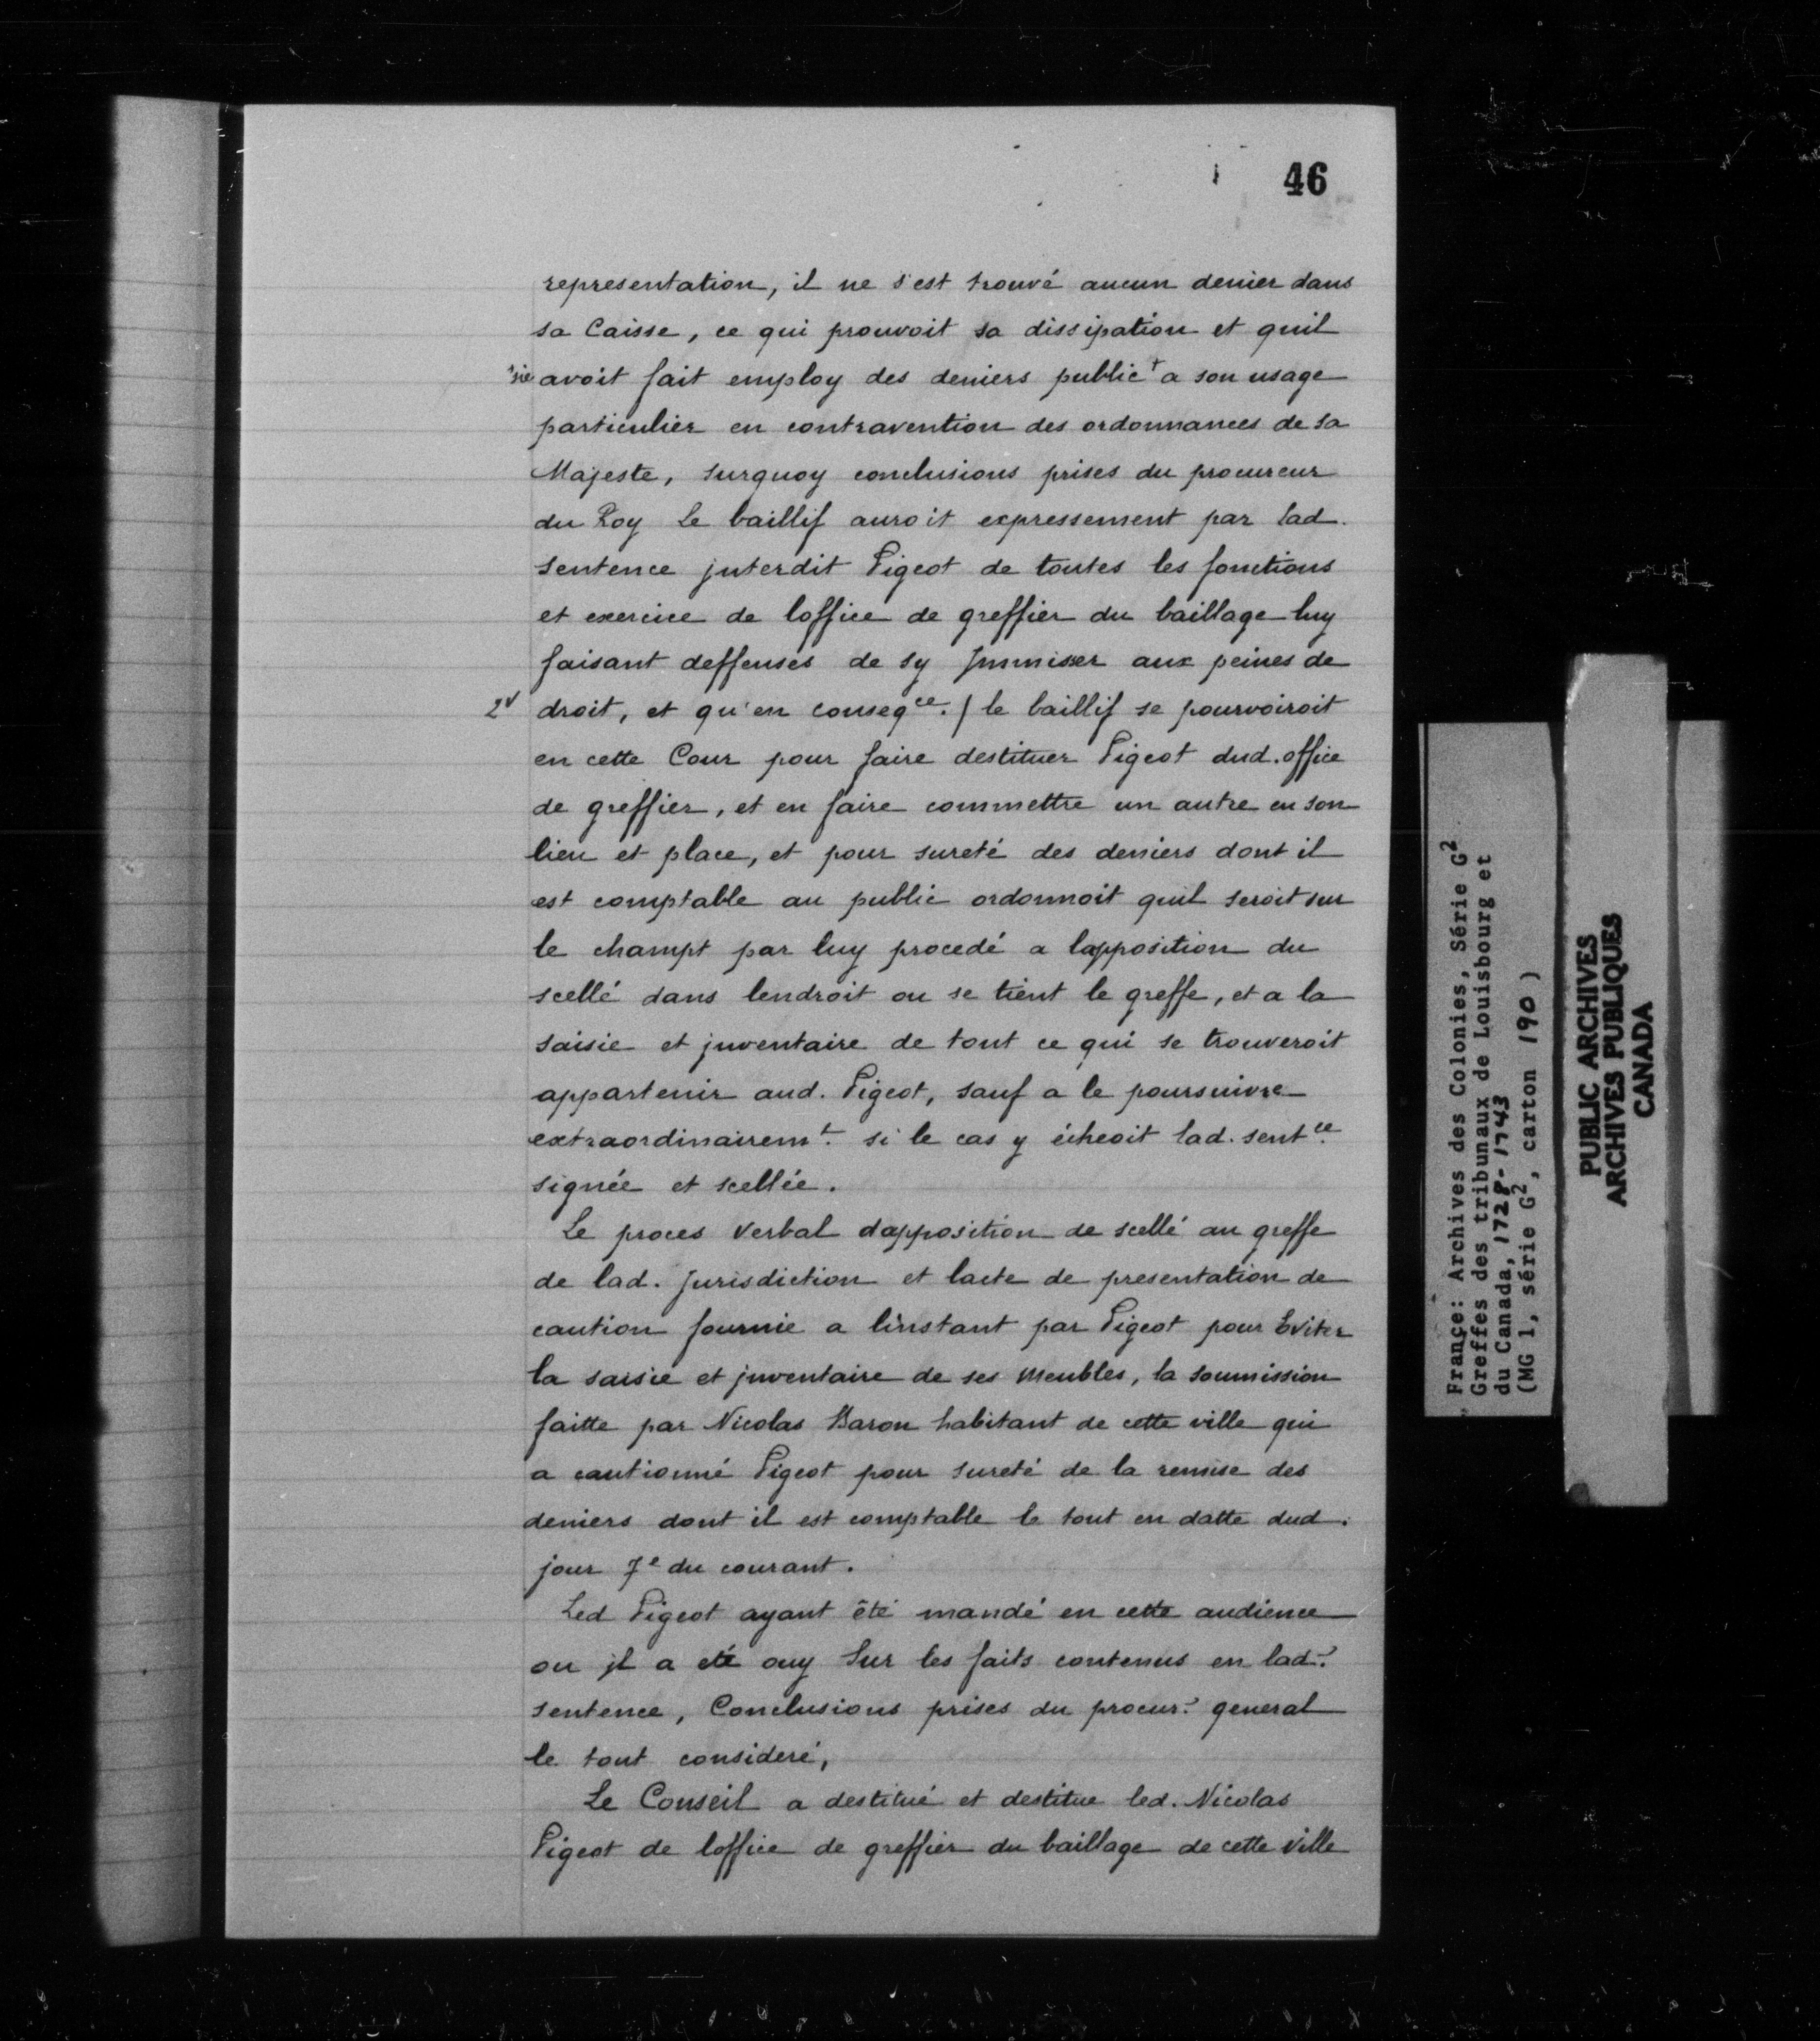 46
representation, il ne s'est trouvé aucun denier dans
sa Caisse, ce qui prouvoit sa dissipation et quil
sic avoit fait employ des deniers public + a son usage
particulier en contravention des ordonnances de sa
Majeste, surquoy conclusions prises du procureur
du Roy le baillif auroit expressement par lad.
sentence jnterdit Pigeot de toutes les fonctions
et exercice de loffice de greffier du baillage luy
faisant deffenses de sy Jmmiscer aux peines de
2v droit, et qu'en conseqce. / le baillif se pourvoiroit
en cette Cour pour faire destituer Pigeot dud. office
de greffier, et en faire commettre un autre en son
lieu et place, et pour sureté des deniers dont il
est comptable au public ordonnoit quil seroit sur
le champt par luy procedé a lapposition du
scellé dans lendroit ou se tient le greffe, et a la
saisie et jnventaire de tout ce qui se trouveroit
appartenir aud. Pigeot, sauf a le poursuivre
extraordinairemt. si le cas y écheoit lad. sentce.
signée et scellée.
Le proces verbal dapposition de scellé au greffe
de lad. Jurisdiction et lacte de presentation de
caution fournie a linstant par Pigeot pour Eviter
la saisie et jnventaire de ses meubles, la soumission
faitte par Nicolas Baron habitant de cette ville qui
a cautionné Pigeot pour sureté de la remise des
deniers dont il est comptable le tout en datte dud.
jour 7e du courant.
Led Pigeot ayant été mandé en cette audience
ou jl a eté ouy sur les faits contenus en lad.
sentence, Conclusions prises du procur. general
le tout consideré,
Le Conseil a destitué et destitue led. Nicolas
Pigeot de loffice de greffier du baillage de cette ville
France: Archives des Colonies, Série G2
Greffes des tribunaux de Louisbourg et
du Canada, 1728-1743
(MG 1, série G2, carton 190)
PUBLIC ARCHIVES
ARCHIVES PUBLIQUES
CANADA